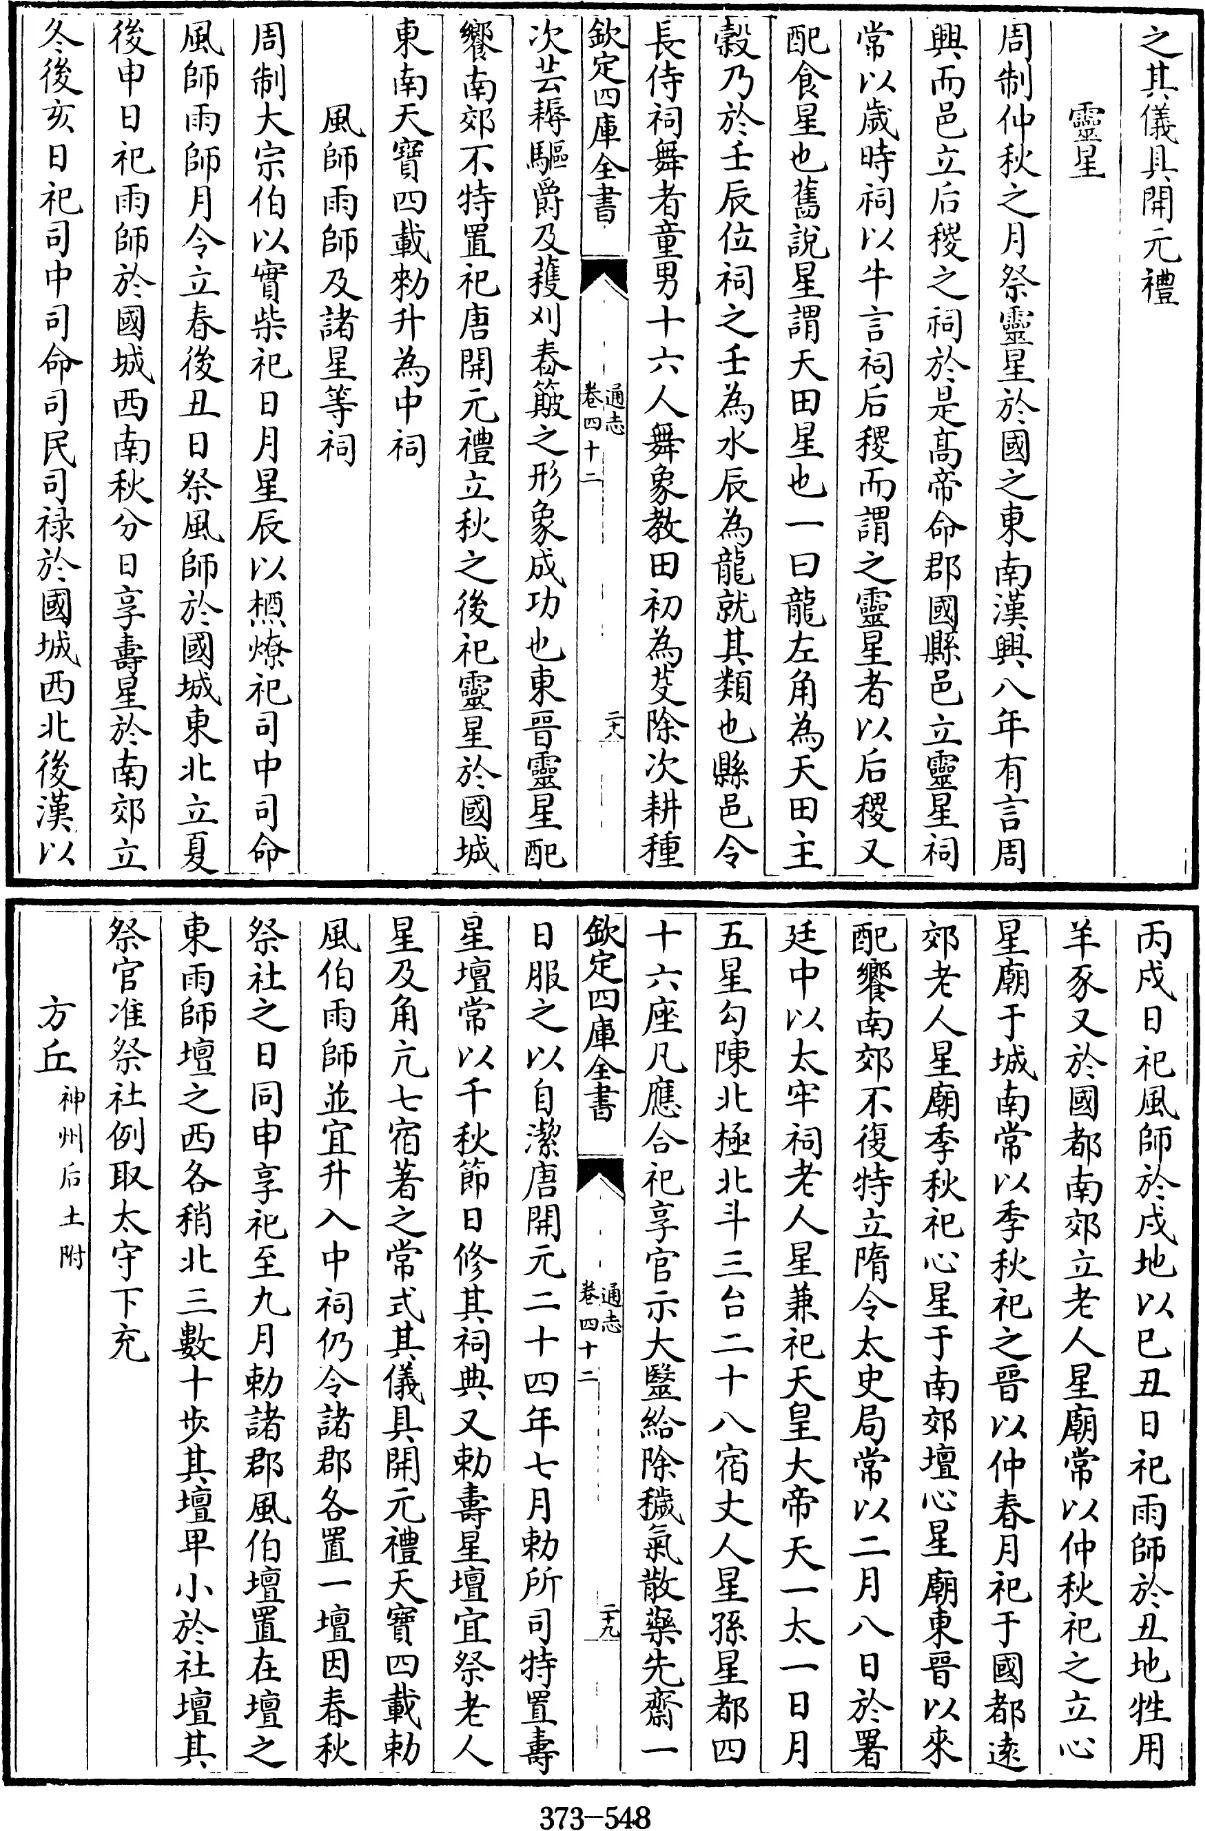 之其儀具開元禮
靈星
周制仲秋之月祭靈星於國之東南漢興八年有言周
興而邑立后稷之祠於是髙帝命郡國縣邑立靈星祠
常以歲時祠以牛言祠后稷而謂之靈星者以后稷又
配食星也舊説星謂天田星也一曰龍左角為天田主
穀乃於壬辰位祠之壬為水辰為龍就其類也縣邑令
長侍祠舞者童男十六人舞象教田初為芟除次耕種
欽定四庫全書
通志
卷四十二
二十八
次芸耨驅爵及穫刈舂簸之形象成功也東晉靈星配
饗南郊不特置祀唐開元禮立秋之後祀靈星於國城
東南天寳四載勅升為中祠
風師雨師及諸星等祠
周制大宗伯以實柴祀日月星辰以槱燎祀司中司命
風師雨師月令立春後丑日祭風師於國城東北立夏
後申日祀雨師於國城西南秋分日享壽星於南郊立
冬後亥日祀司中司命司民司禄於國城西北後漢以
丙戌日祀風師於戌地以巳丑日祀雨師於丑地牲用
羊豕又於國都南郊立老人星廟常以仲秋祀之立心
星廟于城南常以季秋祀之晉以仲春月祀于國都逺
郊老人星廟季秋祀心星于南郊壇心星廟東晉以來
配饗南郊不復特立隋令太史局常以二月八日於署
廷中以太牢祠老人星兼祀天皇大帝天一太一日月
五星勾陳北極北斗三台二十八宿丈人星孫星都四
十六座凡應合祀享官示大毉給除穢氣散藥先齋一
欽定四庫全書
通志
卷四十二
二十九
日服之以自潔唐開元二十四年七月勅所司特置壽
星壇常以千秋節日修其祠典又勅壽星壇宜祭老人
星及角亢七宿著之常式其儀具開元禮天寳四載勅
風伯雨師並宜升入中祠仍令諸郡各置一壇因春秋
祭社之日同申享祀至九月勅諸郡風伯壇置在壇之
東雨師壇之西各稍北三數十歩其壇卑小於社壇其
祭官准祭社例取太守下充
方丘神州后土附
373-548